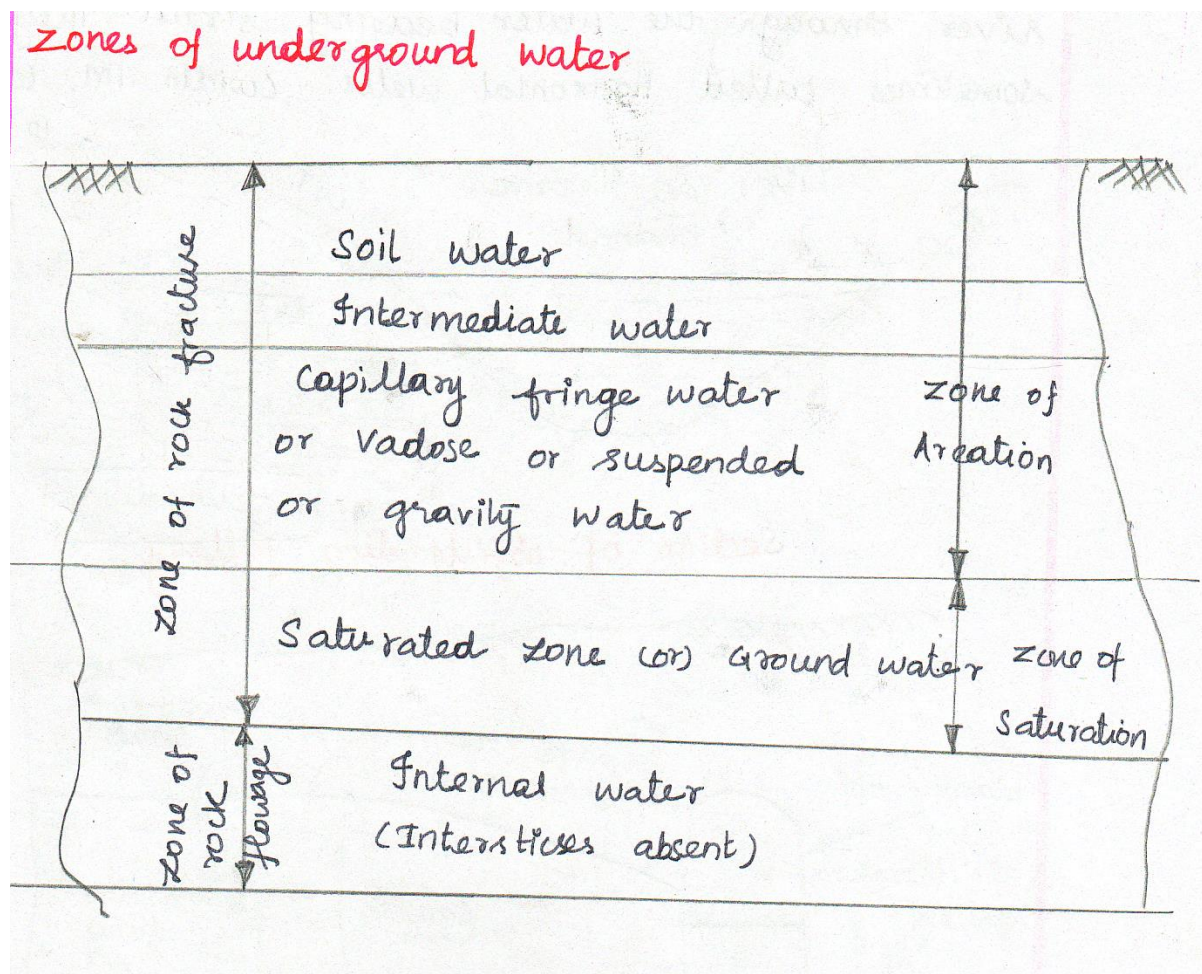 Zones of underground water
Soil water
Intermediate water
Capillary fringe water
or Vadose or suspended
or gravity water
Zone of
Areation
Zone of rock fracture
Saturated zone (or) Ground water
Zone of
Saturation
Zone of
rock
flowage
Internal water
(Interstices absent)